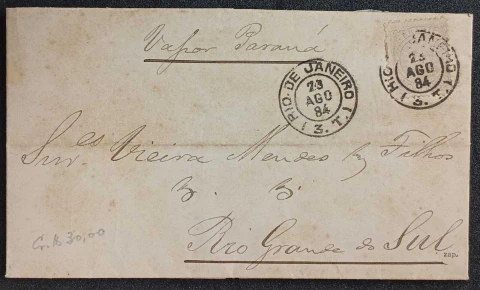 Vapor Paraná
RIO-DE JANEIRO
23
AGO
84
3. T.
JANEIRO
23
AGO
84
3. T.
Snr.es Vieira Mendes & Filhos
Rio Grande do Sul
Cr.$ 30,00